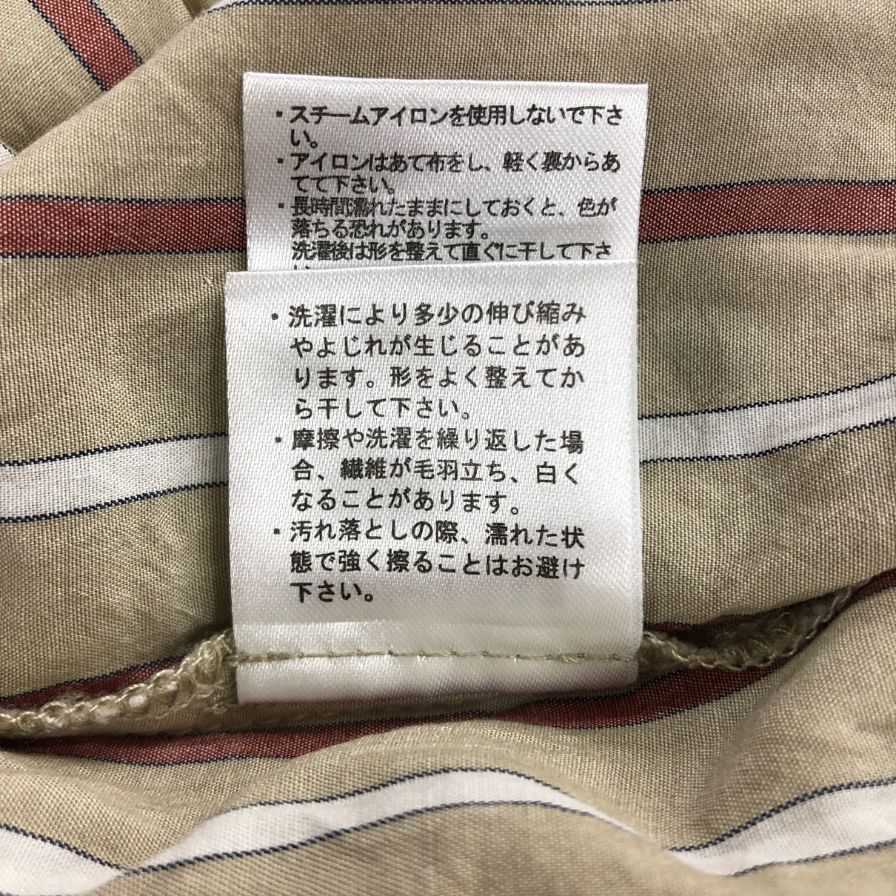 ・スチームアイロンを使用しないで下さ
い。
・アイロンはあて布をし、軽く裏からあ
てて下さい。
・長時間濡れたままにしておくと、色が
落ちる恐れがあります。
洗濯後は形を整えて直ぐに干して下さ
・洗濯により多少の伸び縮み
やよじれが生じることがあ
ります。形をよく整えてか
ら干して下さい。
・摩擦や洗濯を繰り返した場
合、繊維が毛羽立ち、白く
なることがあります。
・汚れ落としの際、濡れた状
態で強く擦ることはお避け
下さい。